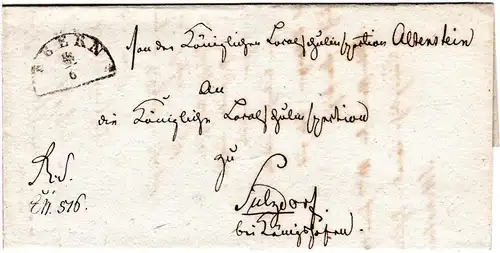 EBERN
Von der Königlichen Localschulinspection Altenstein
An
die Königliche Localschulinspection
zu
R.S.
E.N. 516.
Sulzdorf.
bei Königshofen.